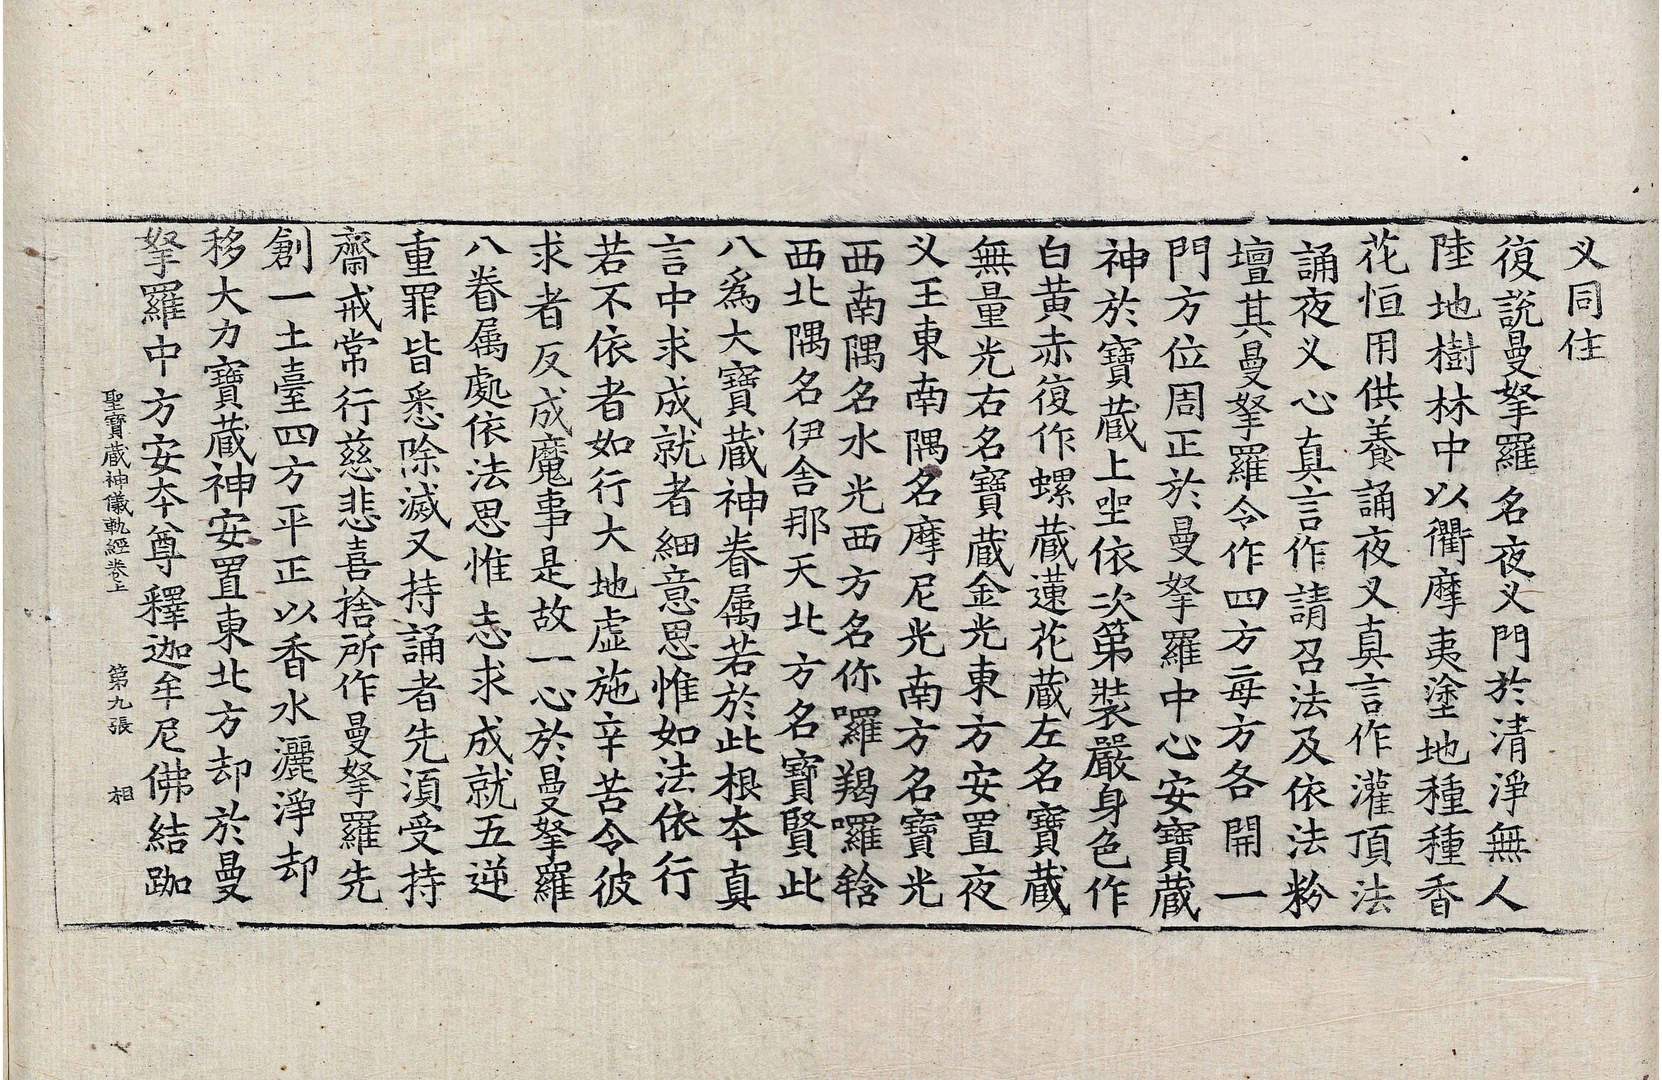 义同住
復說曼拏羅名夜义門於清淨無人
陸地樹林中以衢摩夷塗地種種香
花恒用供養誦夜义真言作灌頂法
誦夜义心真言作請召法及依法粉
壇其曼拏羅令作四方每方各開一
門方位周正於曼拏羅中心安寶藏
神於寶藏上坐依次第裝嚴身色作
白黃赤復作螺藏蓮花藏左名寶藏
無量光右名寶藏金光東方安置夜
义王東南隅名摩尼光南方名寶光
西南隅名水光西方名你囉羯囉𤙖
西北隅名伊舍那天北方名寶賢此
八為大寶藏神眷属若於此根本真
言中求成就者細意思惟如法依行
若不依者如行大地虛施辛苦令彼
求者反成魔事是故一心於曼拏羅
八眷属處依法思惟志求成就五逆
重罪皆悉除滅又持誦者先湏受持
齋戒常行慈悲喜捨所作曼拏羅先
創一土臺四方平正以香水灑淨却
移大力寶藏神安置東北方却於曼
拏羅中方安夲尊釋迦牟尼佛結跏
聖寶藏神儀軌經卷上 第九張 相